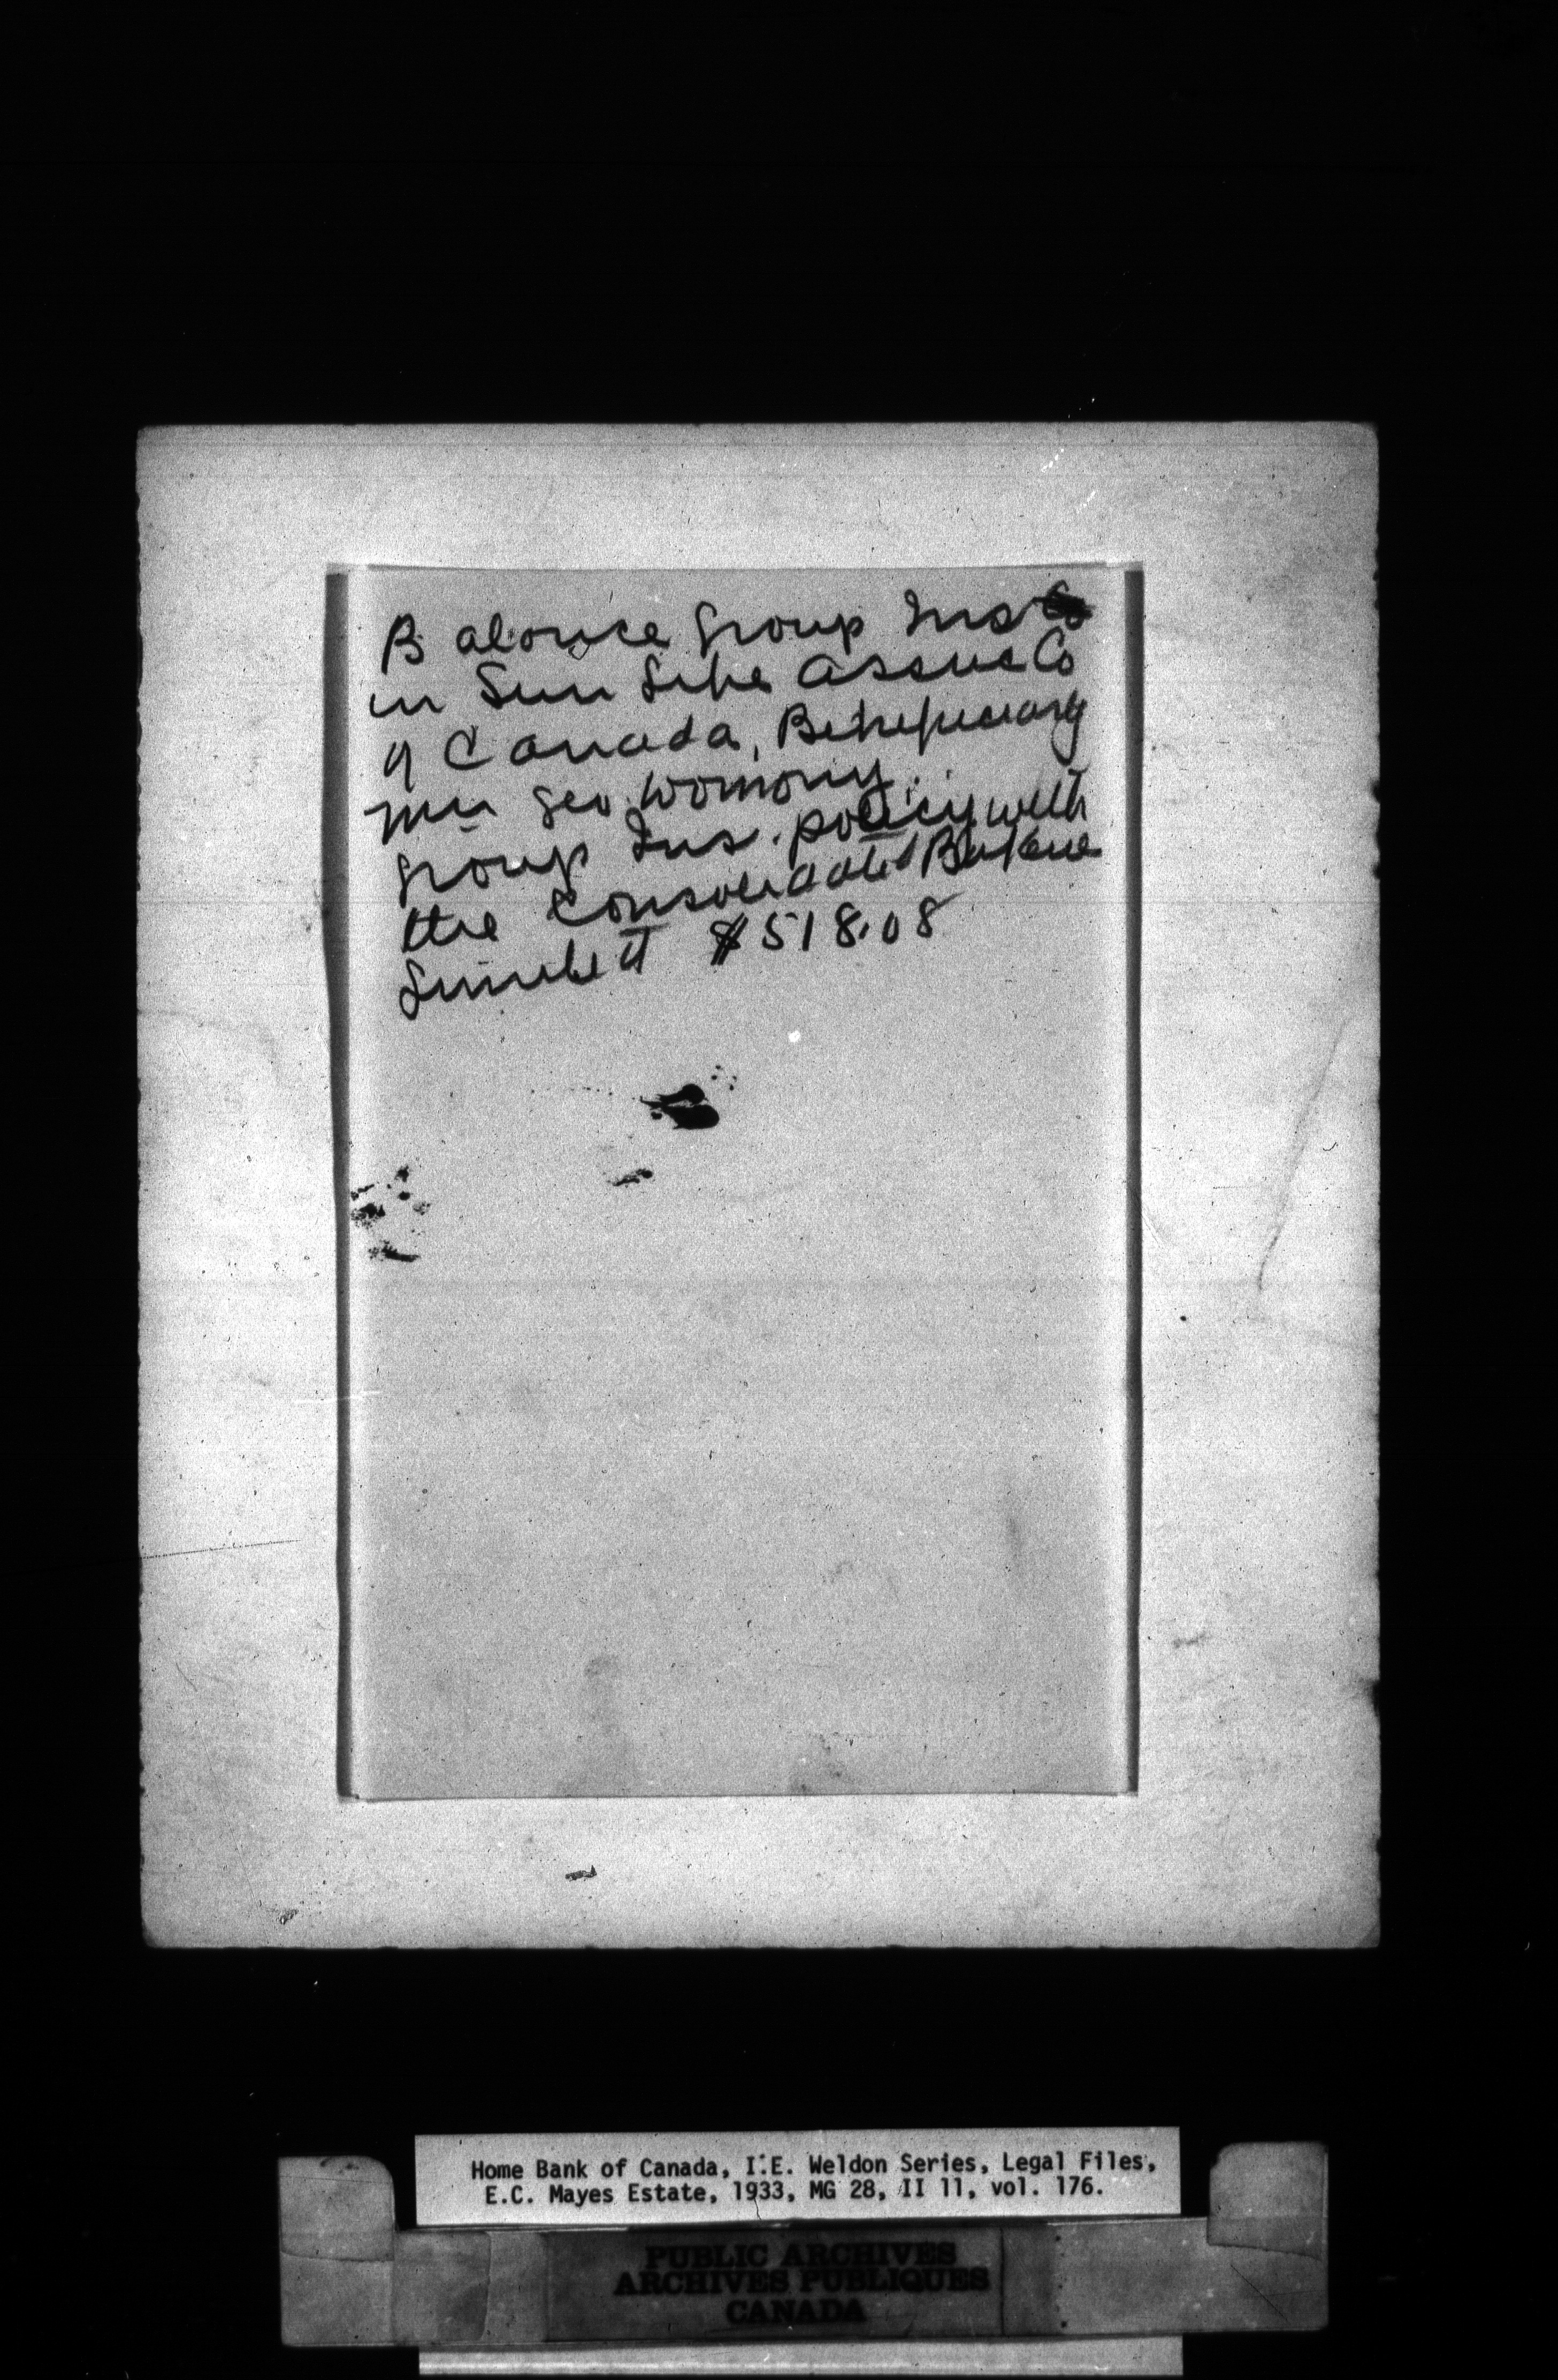 Balance Group Ins
in Sun Life Assce Co
of Canada, Beneficiary
Mrs Geo.
Group Ins. policy with
the Consolidated Bakeries
Limited $518.08
Home Bank of Canada, I.E. Weldon Series, Legal Files,
E.C. Mayes Estate, 1933, MG 28, II 11, vol. 176.
PUBLIC ARCHIVES
ARCHIVES PUBLIQUES
CANADA